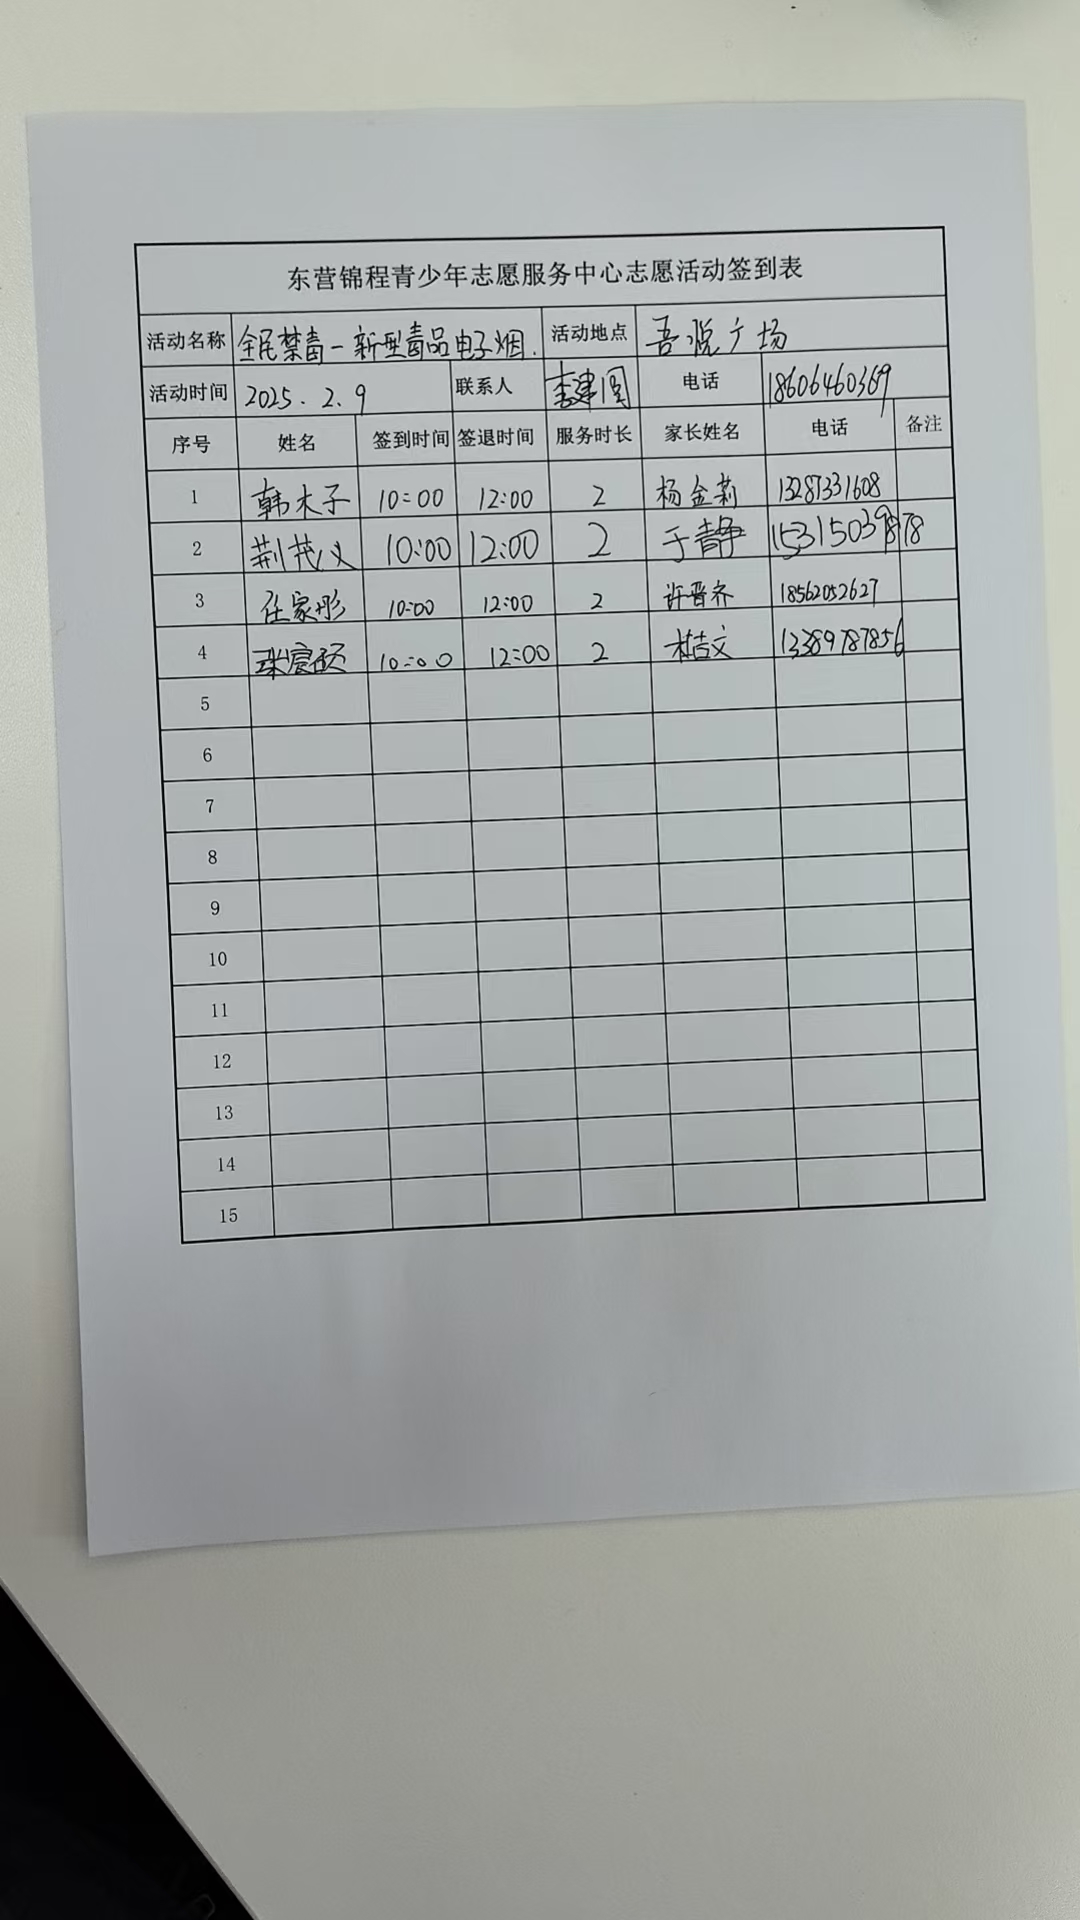 东营锦程青少年志愿服务中心志愿活动签到表
活动名称 全民禁毒-新型毒品电子烟. 活动地点 吾悦广场
活动时间 2025.2.9 联系人 李建国 电话 18606460369
序号 姓名 签到时间 签退时间 服务时长 家长姓名 电话 备注
1 韩木子 10:00 12:00 2 杨金莉 13287331608
2 荆茂义 10:00 12:00 2 于静 15315039878
3 任家彤 10:00 12:00 2 许晋齐 18562052627
4 10:00 12:00 2 13389787856
5
6
7
8
9
10
11
12
13
14
15